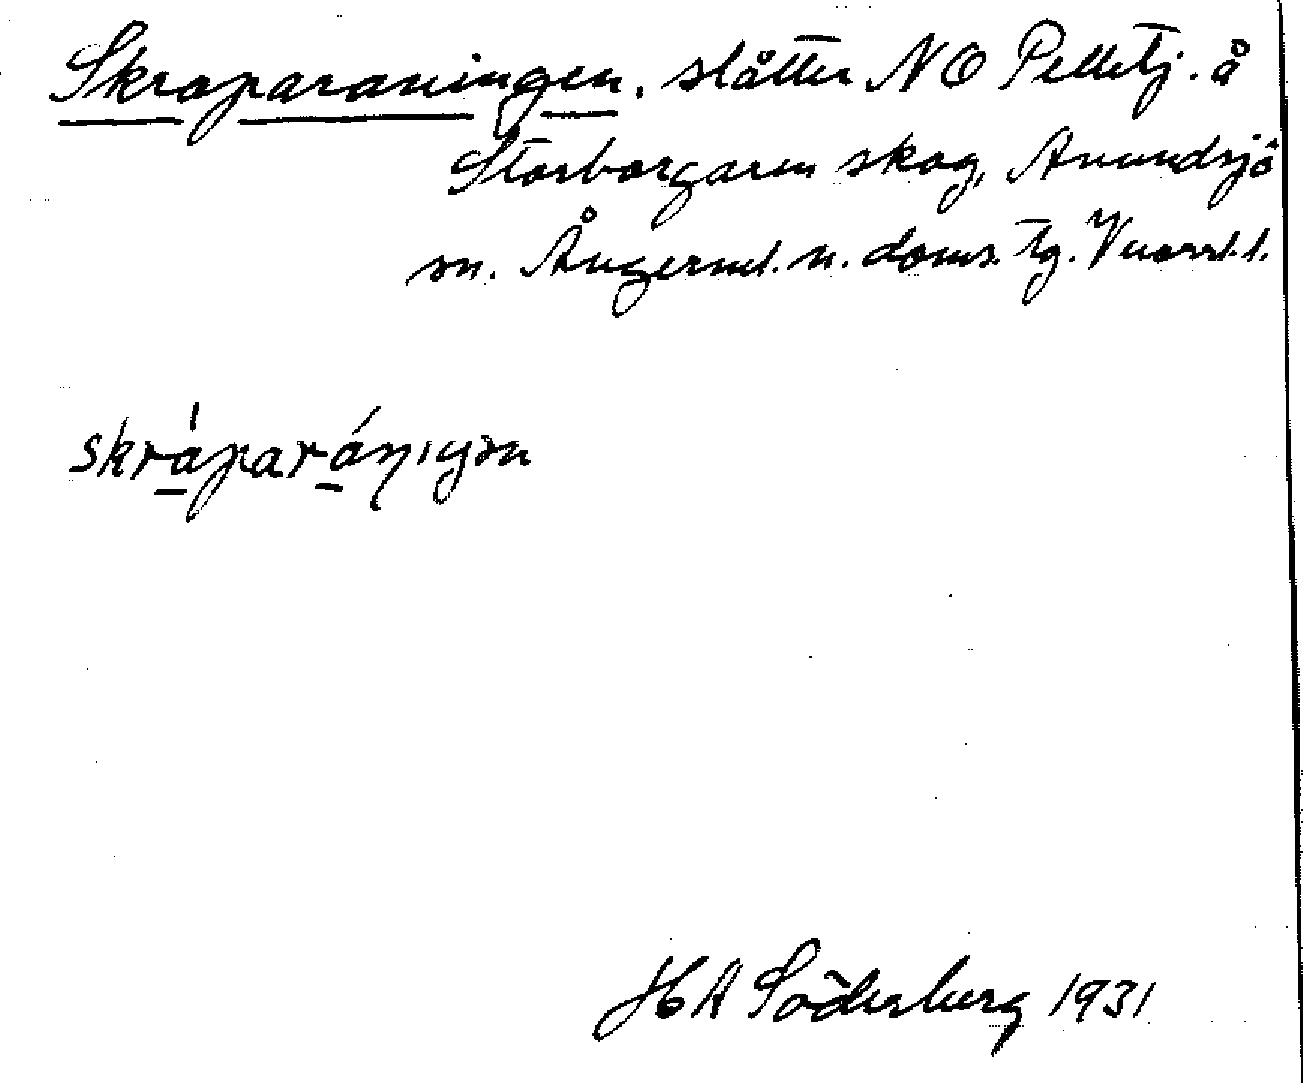 Skraparaningen. slåtter NO Pelletj. å
Storborgaren skog, Anundsjö
sn. Ångerml. n. doms. tg. Västrl. l.
skráparániŋən
H A Söderberg 1931